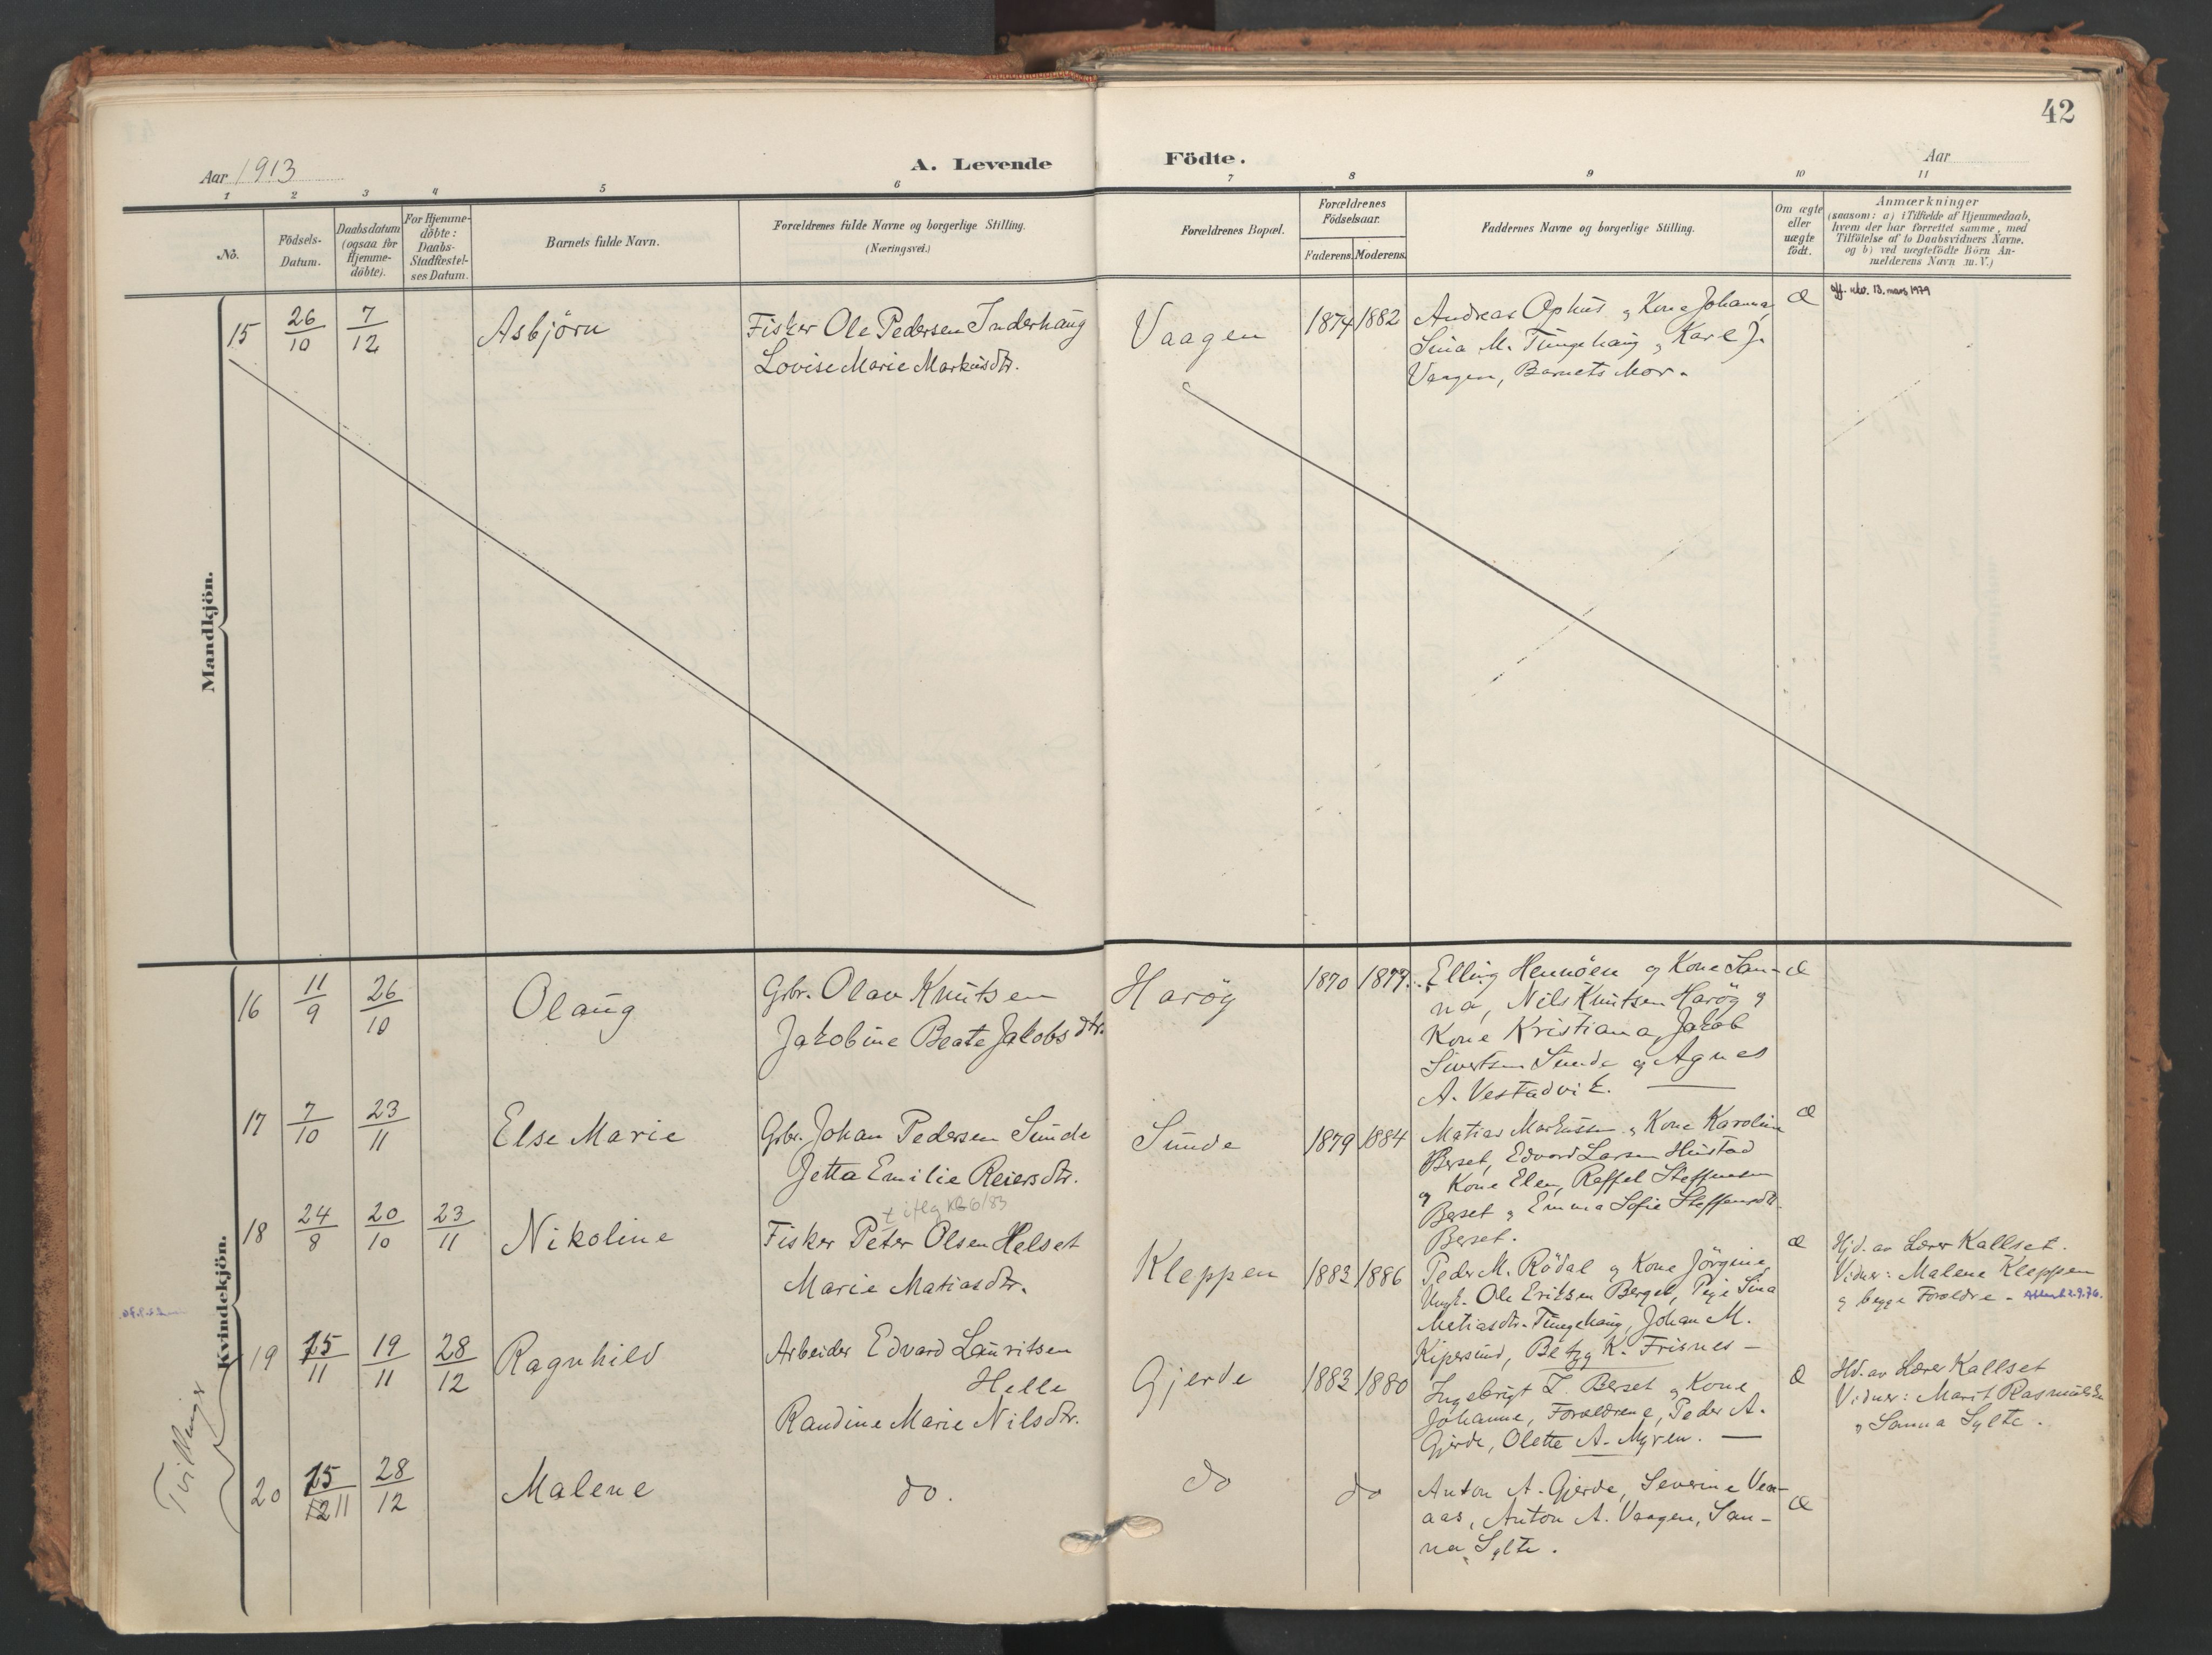 42
Aar 1913
A. Levende Födte.
Aar
1 2 3 4 5 6 7 8 9 10 11
No.
Födsels-
Datum.
Daabsdatum
(ogsaa for
Hjemme-
döbte).
For Hjemme-
döbte:
Daabs-
Stadfæstel-
ses Datum.
Barnets fulde Navn.
Forældrenes fulde Navne og borgerlige Stilling.
(Næringsvei.)
Forældrenes Bopæl.
Forældrenes
Födselsaar.
Faderens. Moderens.
Faddernes Navne og borgerlige Stilling.
Om ægte
eller
uægte
födt.
Anmærkninger
(saasom: a) i Tilfælde af Hjemmedaab,
hvem der har forrettet samme, med
Tilföielse af to Daabsvidners Navne,
og b) ved uægtefödte Börn An-
melderens Navn m. V.)
Mandkjön.
15 26/10 7/12 Asbjörn
Fisker Ole Pedersen Inderhaug
Lovise Marie Markusdtr.
Vaagen 1874 1882
Andreas Ophus og Kone Johanna,
Sina M. Tungehaug, Karl J.
Vaagen, Barnets Mor.
Æ
13. mars 1979
Kvindekjön.
16 11/9 26/10 Olaug
Gbr. Olav Knutsen
Jakobine Beate Jakobsdtr.
Haröy 1870 1877
Elling Hennöen og Kone San-
na, Nils Knutsen Haröy og
Kone Kristiana, Jakob
Sivertsen Sunde og Agnes
A. Vestadvik.
Æ
17 7/10 23/11 Else Marie
Gbr. Johan Pedersen Sunde
Jetta Emilie Reiersdtr.
Sunde 1879 1884
Matias Markussen og Kone Karoline
Berset, Edvard Larsen Hustad
og Kone Elen, Raffel Steffensen
Berset og Emma Sofie Steffensdtr.
Berset.
Æ
18 24/8 20/10 23/11 Nikoline
† iflg KB 6/83
Fisker Peter Olsen Helset
Marie Matiasdtr.
Kleppen 1883 1886
Peder M. Rödal og Kone Jörgine,
Ungk. Ole Eriksen Berget, Pige Sina
Matiasdtr. Tungehaug, Johan M.
Kipersund, Betzy K. Frisnes —
Æ
Hjd. av Lærer Kallset.
Vidner: Malene Kleppen
og begge Forældre -
19 15/11 19/11 28/12 Ragnhild
Arbeider Edvard Lauritsen
Helle
Randine Marie Nilsdtr.
Gjerde 1883 1880
Ingebrigt L. Berset og Kone
Johanne, Forældrene, Peder A.
Gjerde, Olette A. Myren. —
Æ
Hd. av Lærer Kallset
Vidner: Marit
og Sanna Sylte.
Tvillinger
20 15/11 28/12 Malene
do.
do do
Anton A. Gjerde, Severine Ven-
aas, Anton A. Vaagen, San-
na Sylte.
Æ